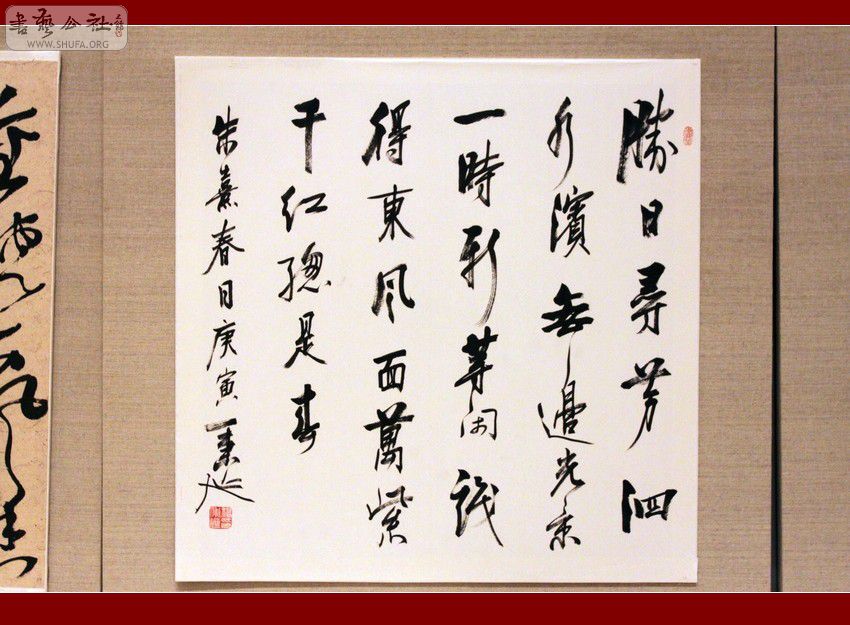 書藝公社
WWW.SHUFA.ORG
勝日尋芳泗
水濱無邊光景
一時新等閑識
得東風面萬紫
千红總是春
朱熹春日庚寅